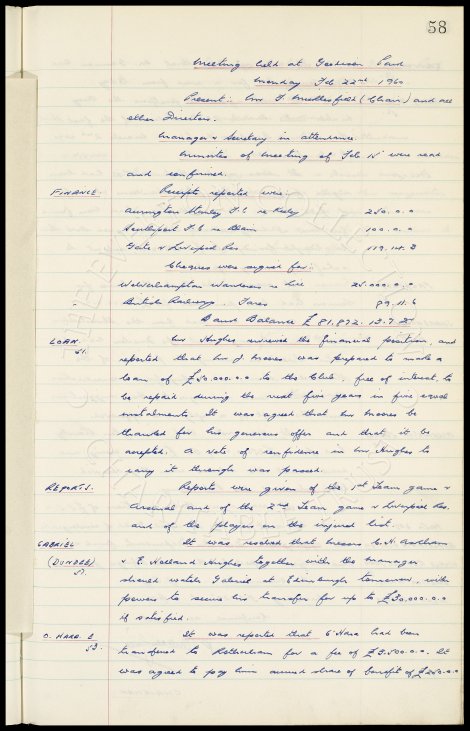 58
Meeting held at Goodison Park
Monday Feb 22nd 1960
Present:- Mr F. Micklesfield (Chair) and all
other Directors.
Manager & Secretary in attendance.
Minutes of meeting of Feb 15 were read
and confirmed.
FINANCE. Receipts reported were:
Accrington Stanley F.C. re Keeley 250.0.0
Southport F.C. re Blain 100.0.0
Gate v Liverpool Res 119.14.3
Cheques were signed for:-
Wolverhampton Wanderers re Lill 25.000.0.0
British Railways. Fares 89.11.6
Bank Balance £81.872.13.7
LOAN. Mr Hughes reviewed the financial position, and
51. reported that Mr J. Moores was prepared to make a
loan of £50.000.0.0 to the Club, free of interest, to
be repaid during the next five years in five equal
instalments. It was agreed that Mr Moores be
thanked for his generous offer and that it be
accepted. A vote of confidence in Mr Hughes to
carry it through was passed.
REPORTS. Reports were given of the 1st Team game v
Arsenal and of the 2nd Team game v Liverpool Res.
and of the players on the injured list.
GABRIEL It was resolved that Messrs C. H. Askham
(DUNDEE) & E. Holland Hughes together with the manager
52. should watch Gabriel at Edinburgh tomorrow, with
powers to secure his transfer for up to £30,000.0.0
if satisfied.
O. HARA. It was reported that O'Hara had been
53. transferred to Rotherham for a fee of £3.500.0.0. It
was agreed to pay him accrued share of benefit of £250.0.0